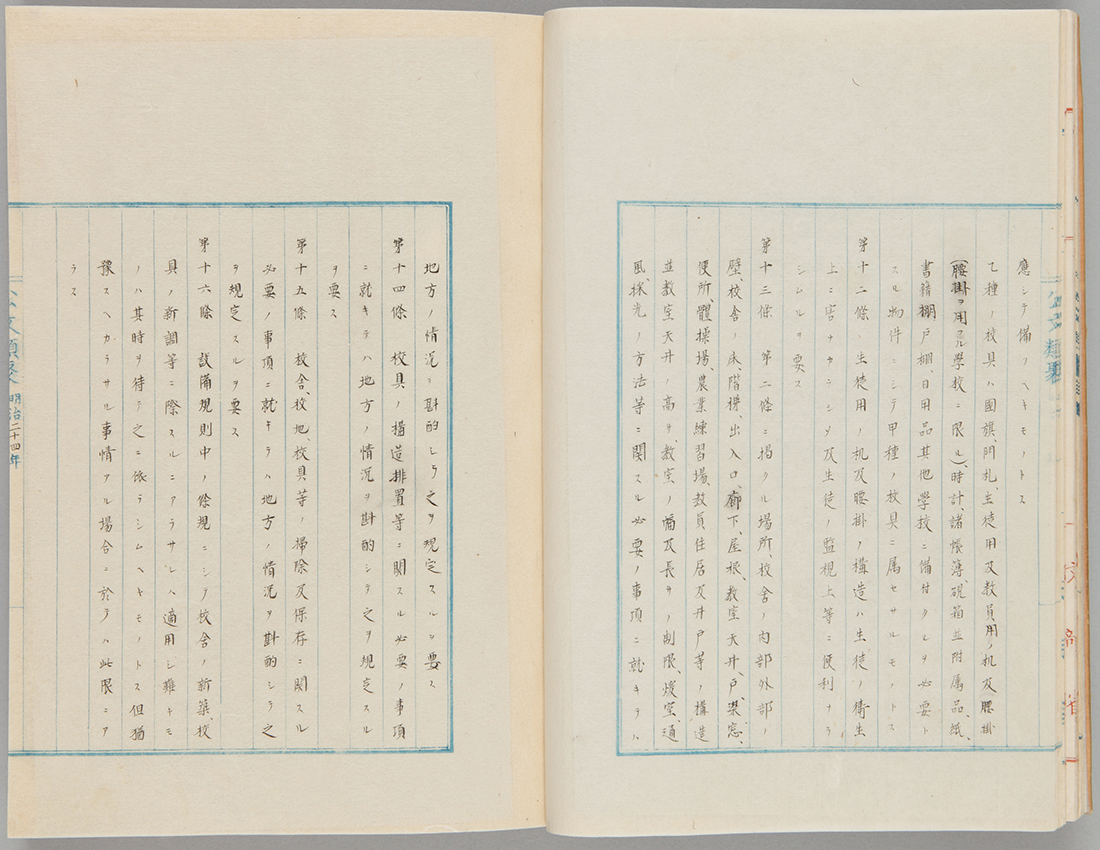 應シテ備フヘキモノトス
乙種ノ校具ハ國旗、門札、生徒用及教員用ノ机及腰掛
(腰掛ヲ用フル學校ニ限ル)、時計、諸帳簿、硯箱並附属品、紙、
書籍棚、戸棚、日用品其他學校ニ備付クルヲ必要ト
スル物件ニシテ甲種ノ校具ニ属セサルモノトス
第十二條 生徒用ノ机及腰掛ノ構造ハ生徒ノ衛生
上ニ害ナカラシメ及生徒ノ監視上等ニ便利ナラ
シムルヲ要ス
第十三條 第二條ニ掲クル場所、校舎ノ内部外部ノ
壁、校舎ノ床、階梯、出入口、廊下、屋根、教室天井、戸、窓、
便所、體操場、農業練習場、教員住居及井戸等ノ構造
並教室天井ノ高サ、教室ノ幅及長サノ制限、煖室、通
風、採光ノ方法等ニ関スル必要ノ事項ニ就キテハ
地方ノ情況ヲ斟酌シテ之ヲ規定スルヲ要ス
第十四條 校具ノ構造排置等ニ関スル必要ノ事項
ニ就キテハ地方ノ情況ヲ斟酌シテ之ヲ規定スル
ヲ要ス
第十五條 校舎、校地、校具等ノ掃除及保存ニ関スル
必要ノ事項ニ就キテハ地方ノ情況ヲ斟酌シテ之
ヲ規定スルヲ要ス
第十六條 設備規則中ノ條規ニシテ校舎ノ新築、校
具ノ新調等ニ際スルニアラサレハ適用シ難キモ
ノハ其時ヲ待テ之ニ依ラシムヘキモノトス但猶
豫スヘカラサル事情アル場合ニ於テハ此限ニア
ラス
公文類聚 明治二十四年